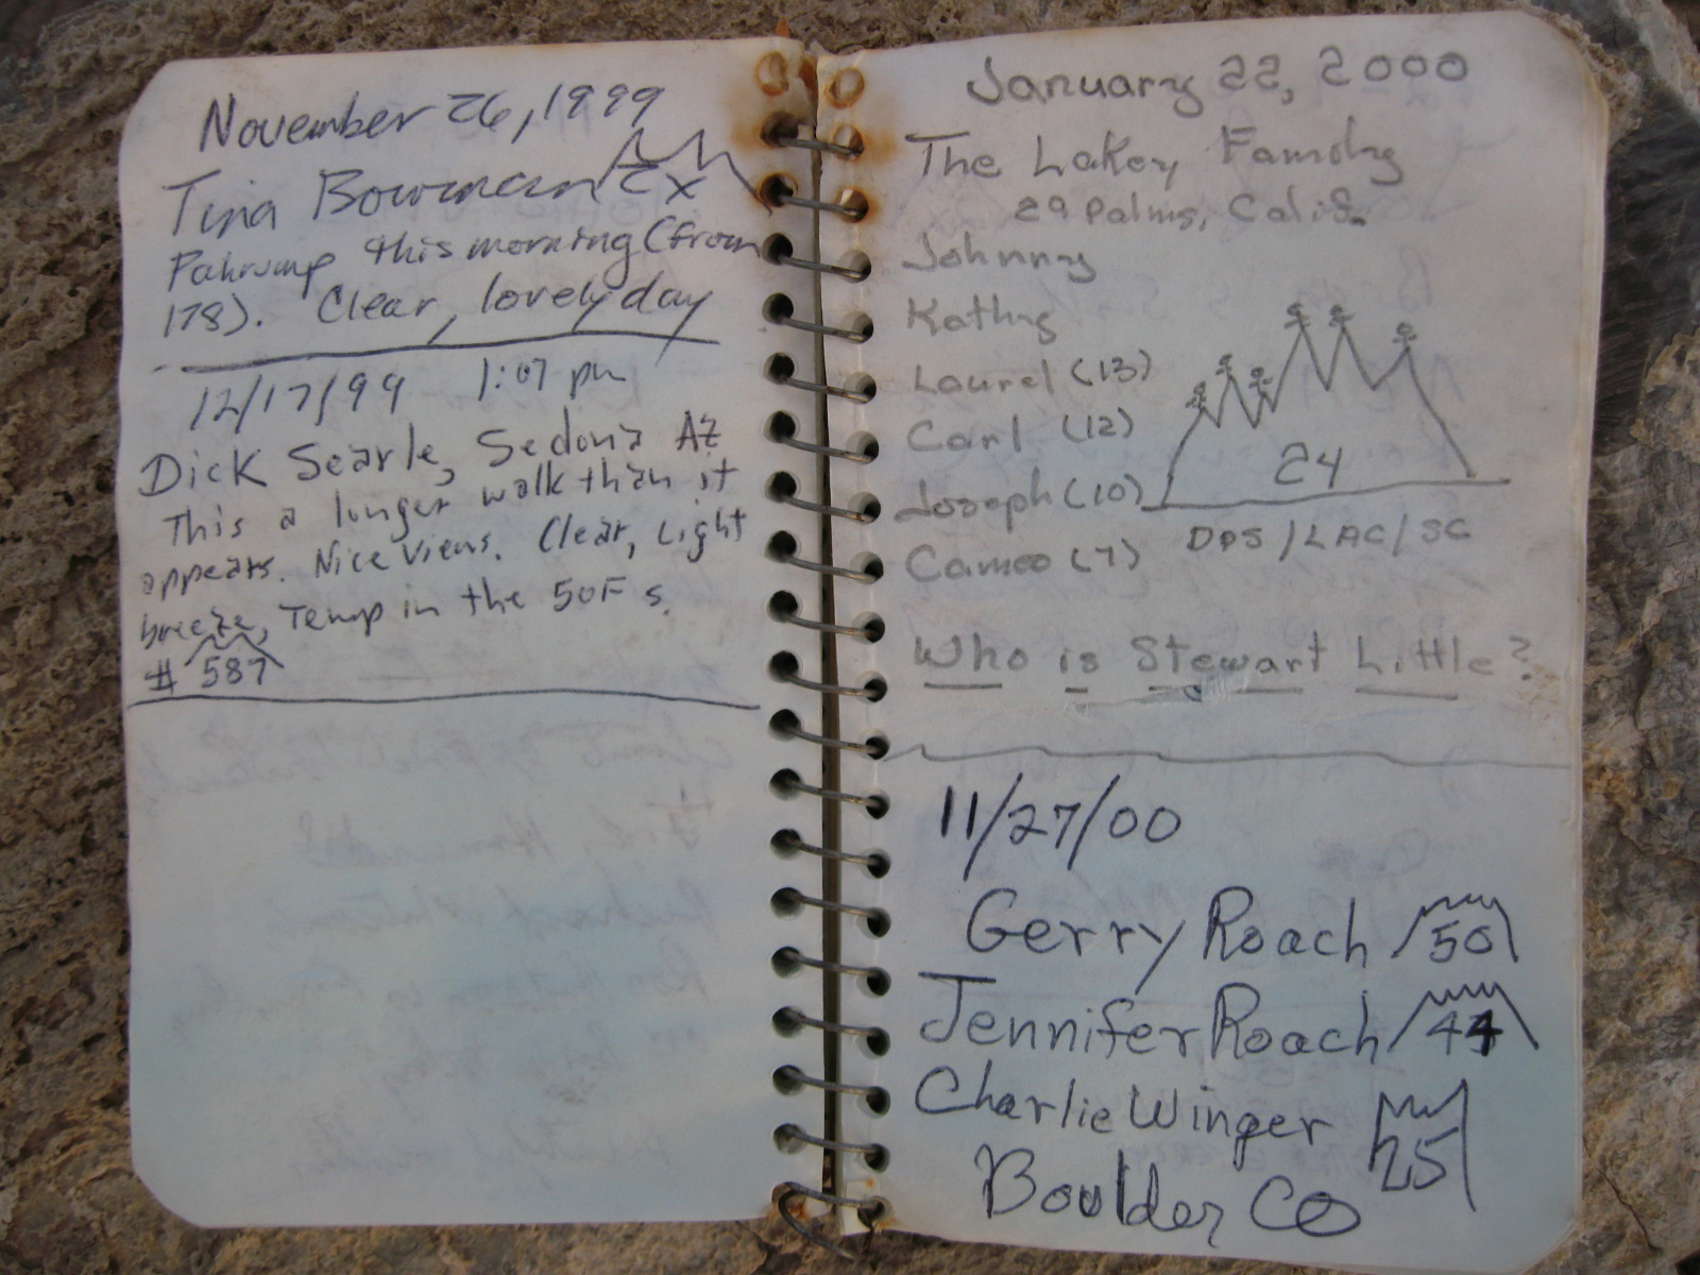 November 26, 1999
Tina Bowman Ex
Pahrump this morning (from
178). Clear, lovely day
12/17/99 1:07 pm
Dick Searle, Sedona AZ
This a longer walk than it
appears. Nice views. Clear, Light
breeze, Temp in the 50F s.
# 587
January 22, 2000
The Lakey Family
29 Palms, Calif.
Johnny
Kathy
Laurel (13)
Carl (12)
Joseph (10)
Cameo (7)
24
DPS/LAC/SC
Who is Stewart Little?
11/27/00
Gerry Roach 50
Jennifer Roach 44
Charlie Winger 25
Boulder CO